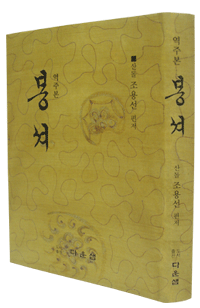 역주본
봉셔
조용선 편저
다운샘
역주본
봉셔
조용선 편저
다운샘